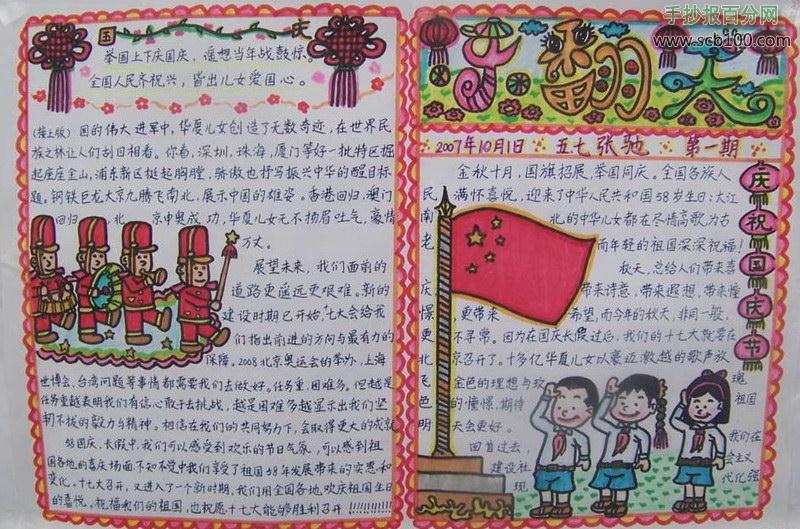 手抄报百分网
www.scb100.com
国庆
举国上下庆国庆，遥想当年战鼓惊。
全国人民齐祝兴，皆出儿女爱国心。
(接上版) 国的伟大进军中，华夏儿女创造了无数奇迹，在世界民
族之林让人们刮目相看。你看，深圳，珠海，厦门等好一批特区掘
起座座金山，浦东新区挺起胸膛，骄傲也抒写振兴中华的醒目标
题。钢铁巨龙大京九腾飞南北，展示中国的雄姿。香港回归，澳门
回归，北京申奥成功，华夏儿女无不扬眉吐气，豪情
万丈。
展望未来，我们面前的
道路更遥远更艰难。新的
建设时期已开始，十七大会给我
们指出前进的方向与最有力的
保障。2008北京奥运会的举办，上海
世博会，台湾问题等事情都需要我们去做好。任务重，困难多。但越是
任务重越表明我们有信心敢于去挑战，越是困难多越显示出我们坚
韧不拔的毅力与精神。相信在我们的共同努力下，会取得更大的成就
58国庆，长假中，我们可以感受到欢乐的节日气氛，可以感到祖
国各地的喜庆场面，不知不觉中我们享受了祖国58年发展带来的实惠和
变化。十七大召开，又进入了一个新时期，我们用全国各地欢庆祖国生日
的喜悦。祝福我们的祖国，也祝愿十七大能够胜利召开!!!!!!!!!!!
2007年10月1日 五七 张驰 第一期
庆祝国庆节
金秋十月，国旗招展，举国同庆。全国各族人
民满怀喜悦，迎来了中华人民共和国58岁生日：大江
南北的中华儿女都在尽情高歌，为古
老而年轻的祖国深深祝福!
秋天，总给人们带来喜
庆，带来诗意，带来遐想，带来憧
憬，更带来希望，而今年的秋天，非同一般，
更不寻常。因为在国庆长假过后，我们的十七大就要在
北京召开了。十多亿华夏儿女以豪迈激越的歌声放
飞金色的理想与玫瑰
色的憧憬，期待祖国
明天会更好。
回首过去，我们在
建设社会主义
现代化强